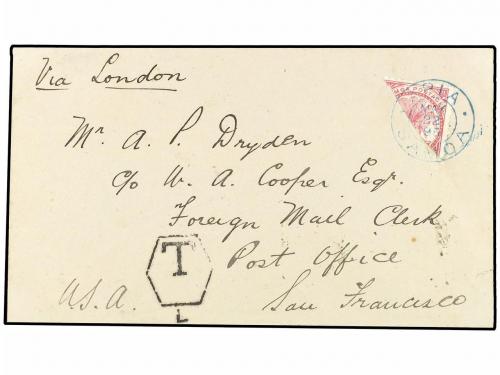 Via London
Mr. A. P. Dryden
c/o W. A. Cooper Esqr.
Foreign Mail Clerk
Post Office
San Francisco
U.S.A.
T
L
APIA
SAMOA